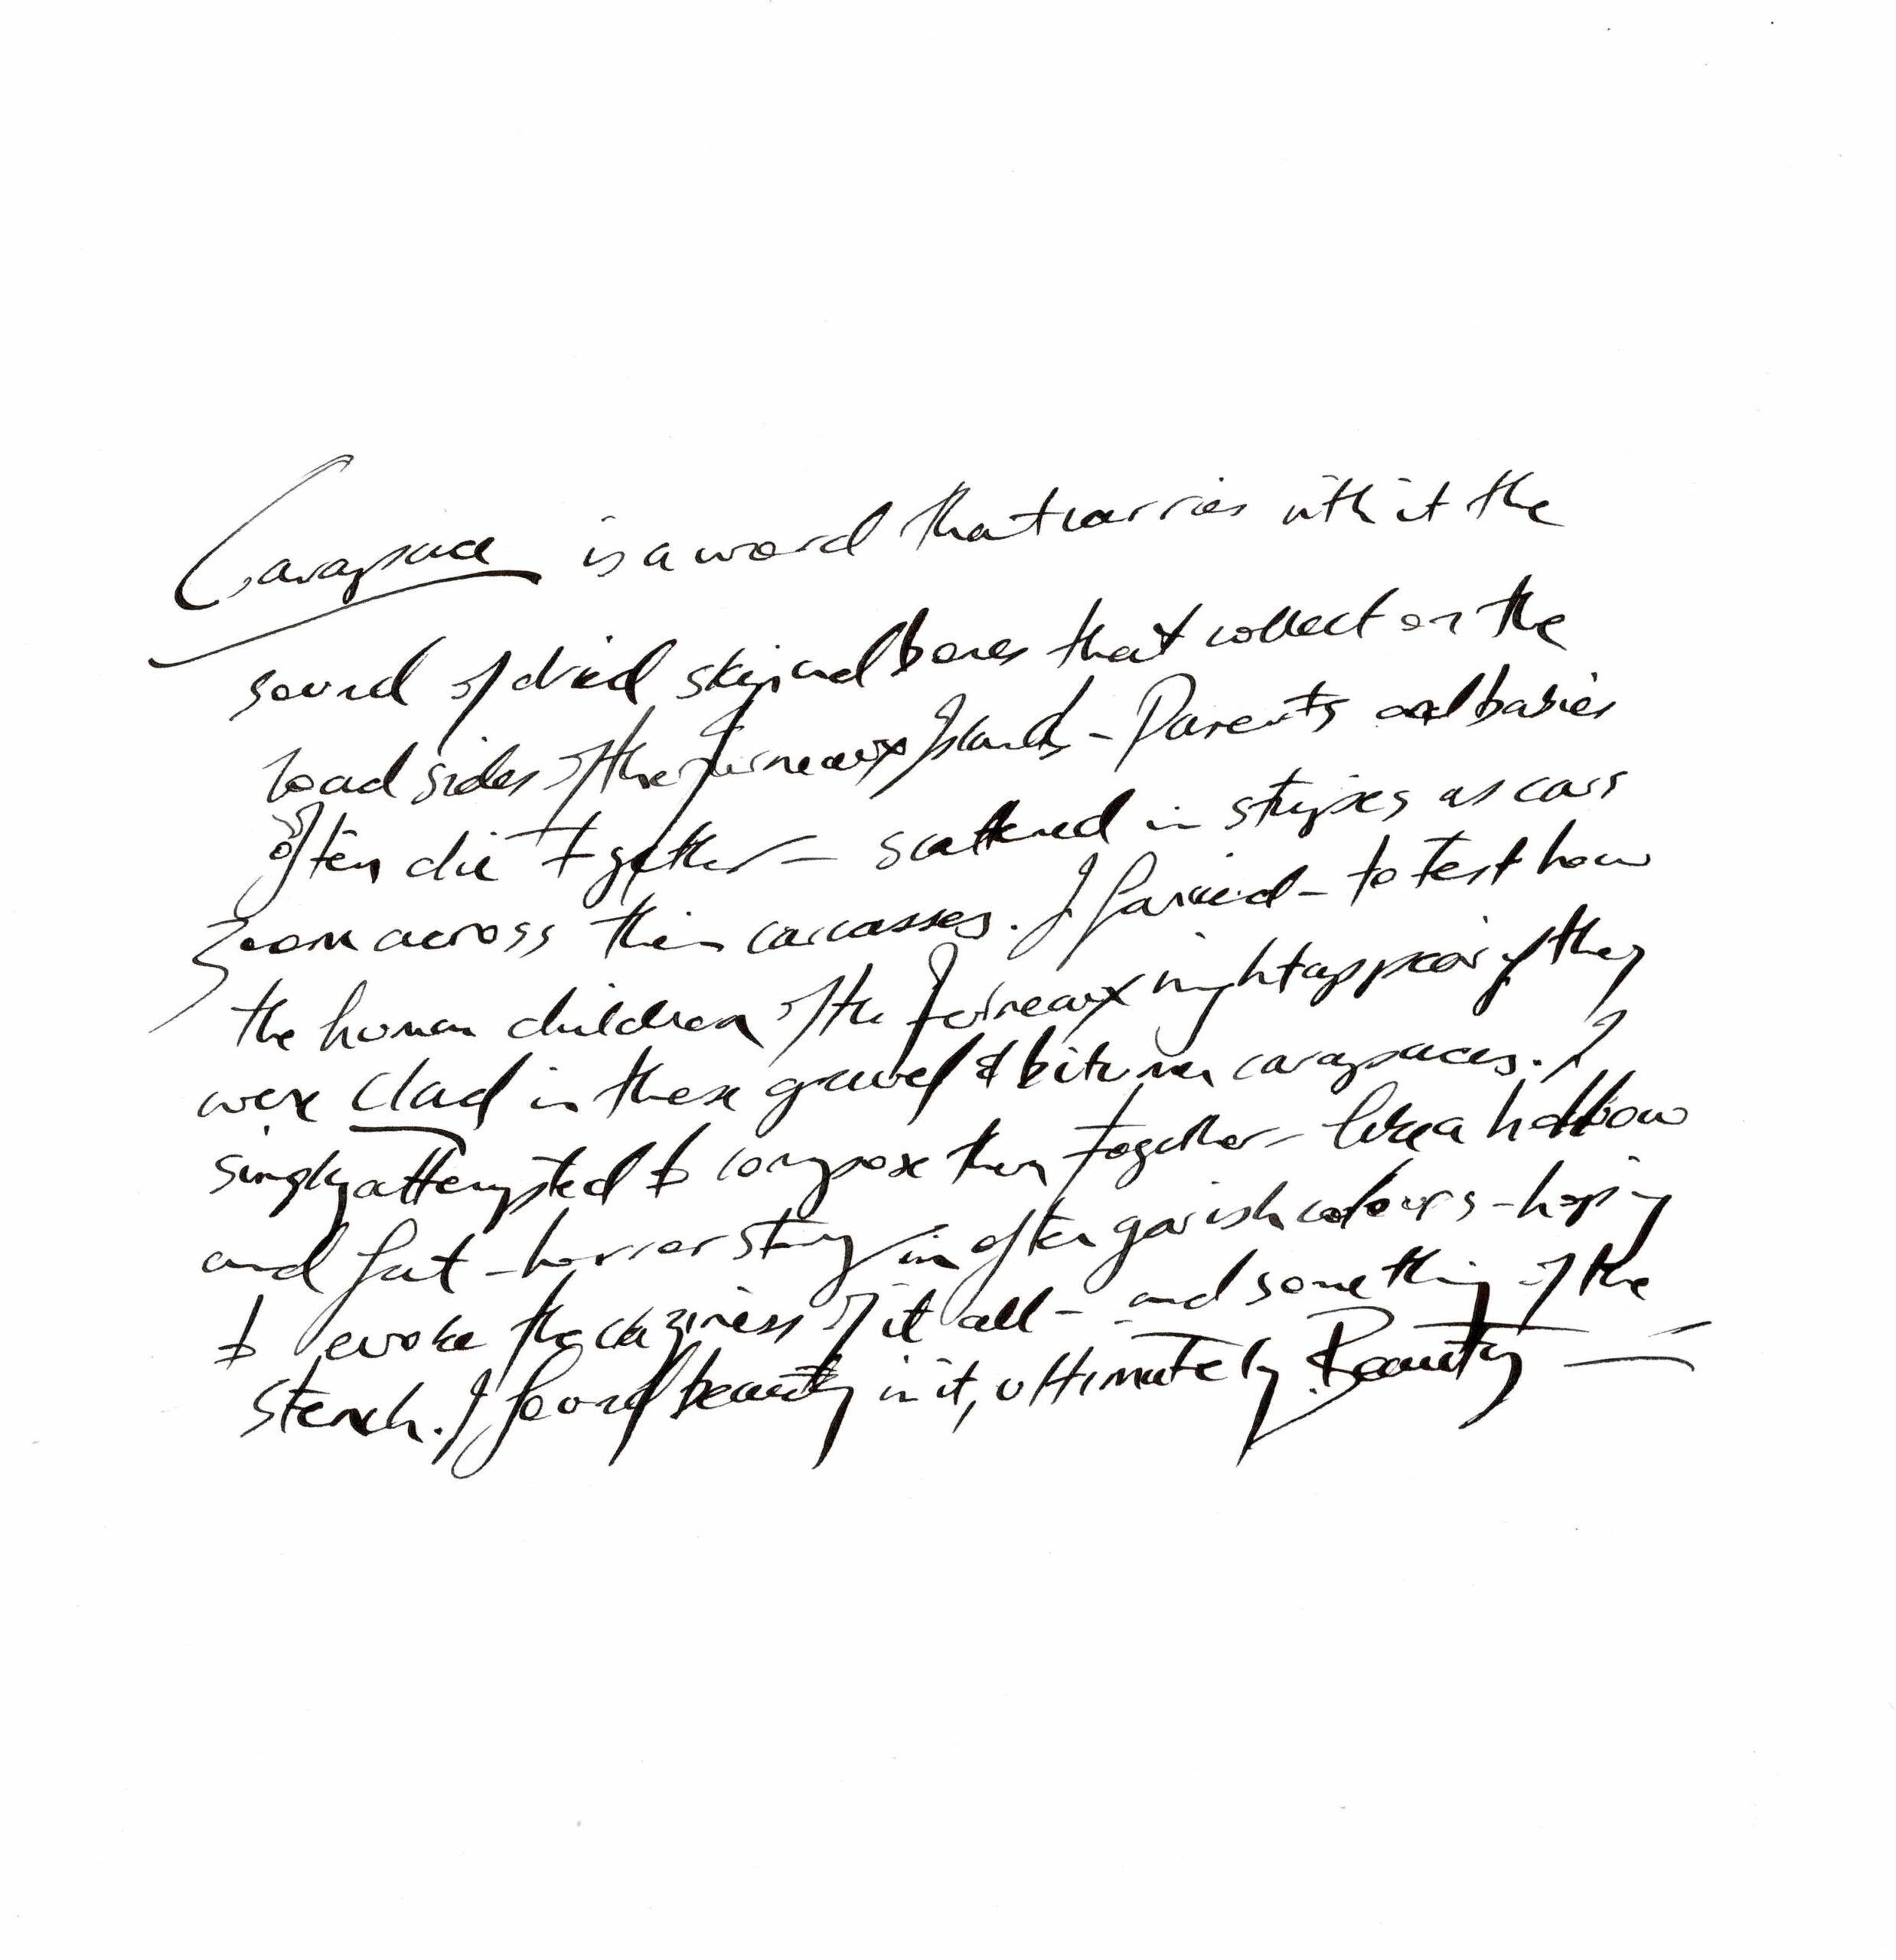 Carapace is a word that carries with it the
sound of dried skin and bones that collect on the
road sides of the Furneaux Islands - Parents and babies
often die together - scattered in stripes as cars
zoom across their carcasses. I fancied - to test how
the human children of the Furneaux might appear if they
were clad in these gravel & bitumen carapaces. I
simply attempted to compose them together - like a hollow
and fat - horror story in often garish colours - hoping
to evoke the craziness of it all - and something of the
stench. I found beauty in it, ultimately Beauty -